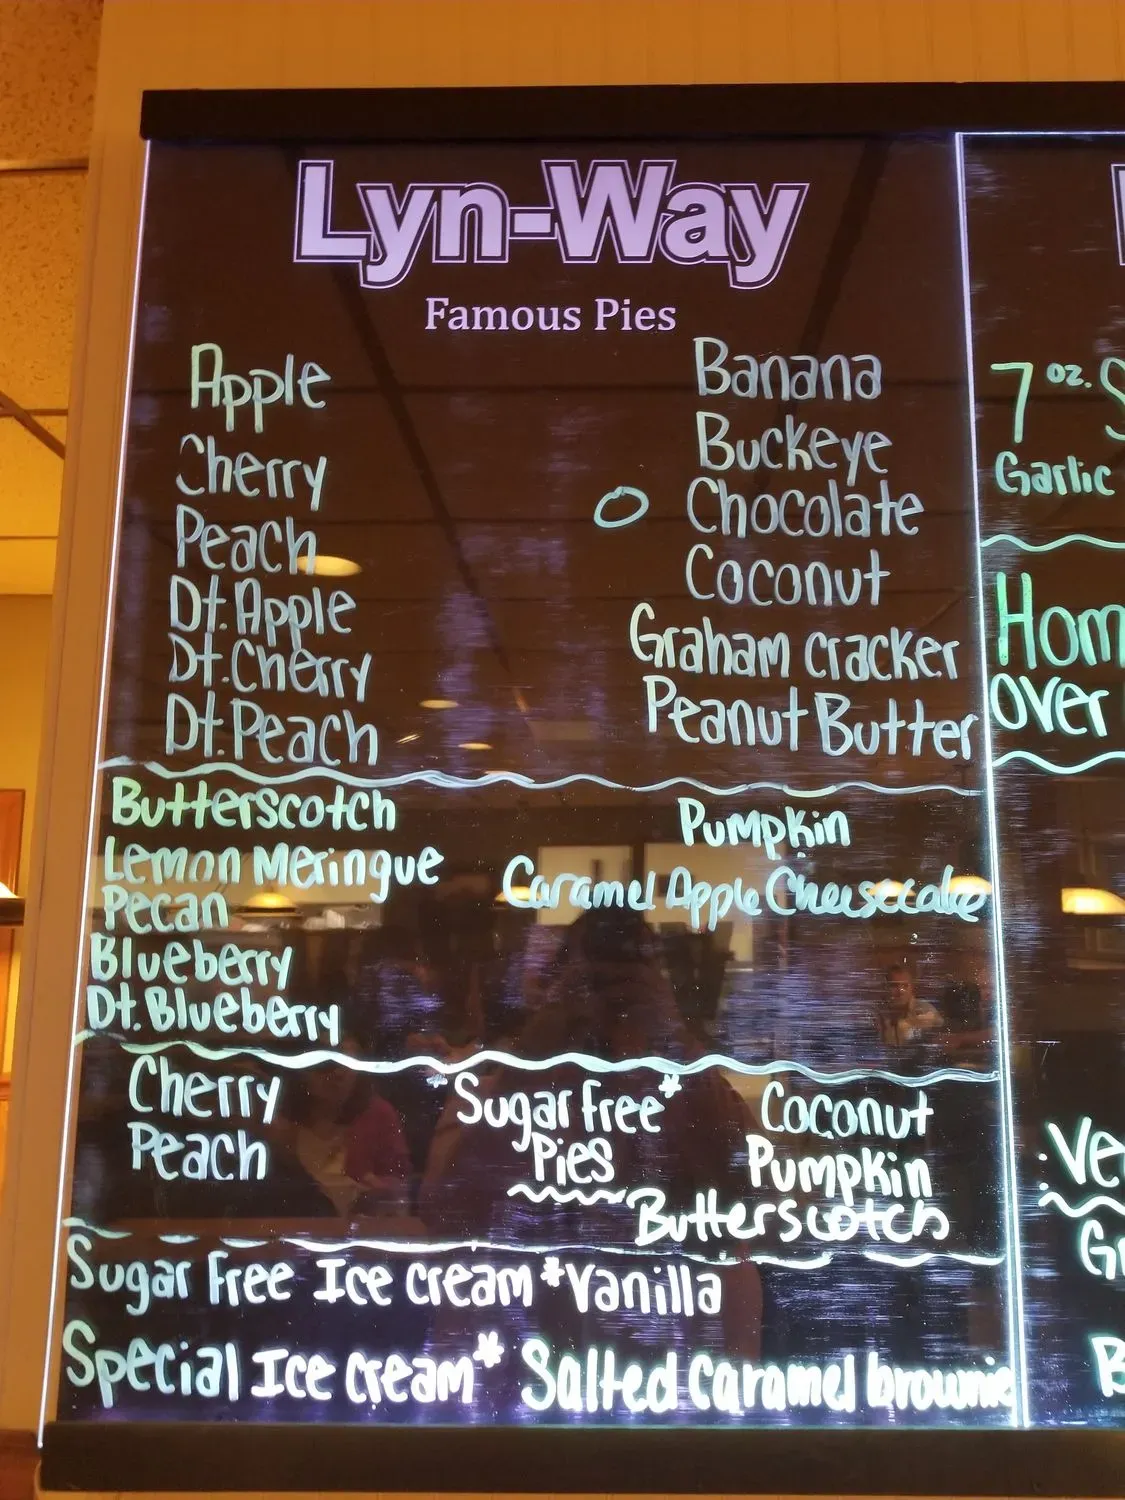 Lyn-Way
Famous Pies
Apple
Cherry
Peach
Dt. Apple
Dt. Cherry
Dt. Peach
Banana
Buckeye
Chocolate
Coconut
Graham cracker
Peanut Butter
Butterscotch
Lemon Meringue
Pecan
Blueberry
Dt. Blueberry
Pumpkin
Caramel Apple Cheesecake
Cherry
Peach
*Sugar Free*
Pies
Coconut
Pumpkin
Butterscotch
Sugar Free Ice cream *Vanilla
Special Ice cream* Salted Caramel brownie
7 oz.
Garlic
Hom
over